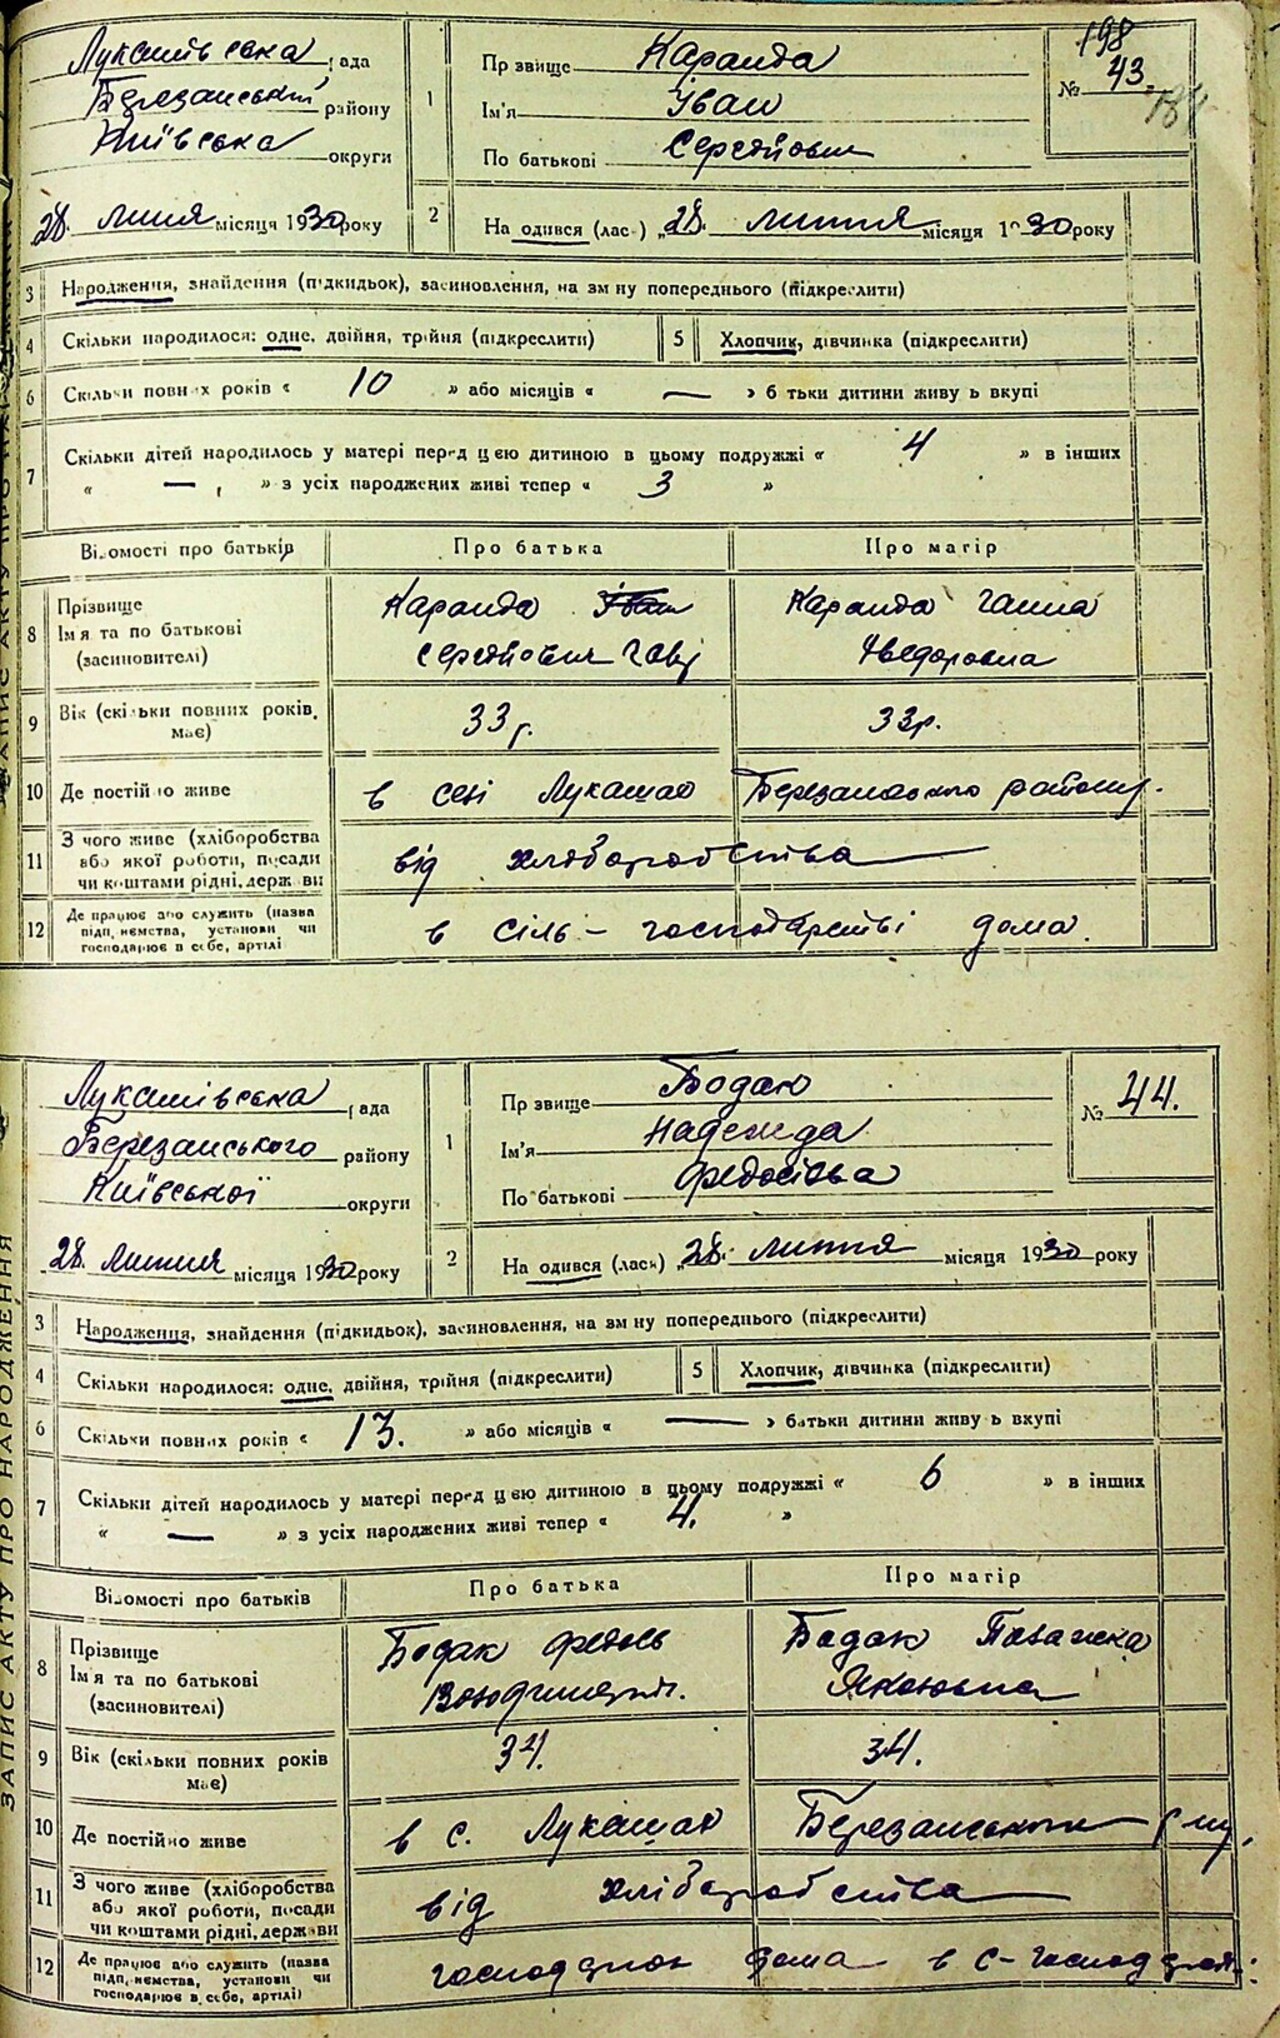 Лукашівська рада
Березанський району
Київська округи
28. липня місяця 1930 року
1
Пр звище Каранда
Ім'я Іван
По батькові Сергійович
198
№ 43.
2
На одився (лас ) „28. липня місяця 1 30 року
3 Народження, знайдення (підкидьок), засиновлення, на зм ну попереднього (підкреслити)
4 Скільки народилося: одне, двійня, трійня (підкреслити) 5 Хлопчик, дівчинка (підкреслити)
6 Скільки повних років « 10 » або місяців « — » б тьки дитини живу ь вкупі
7 Скільки дітей народилось у матері перед цією дитиною в цьому подружжі « 4 » в інших
« — » з усіх народжених живі тепер « 3 »
Відомості про батьків Про батька Про матір
8 Прізвище
Ім я та по батькові
(засиновителі)
Каранда
Каранда Ганна
Хведоровна
9 Вік (скільки повних років,
має)
33 р. 33 р.
10 Де постійно живе в селі Лукашах Березанського району.
11 З чого живе (хліборобства
або якої роботи, посади
чи коштами рідні, держ ви
від хліборобства
12 Де працює або служить (назва
підп иємства, установи чи
господарює в себе, артілі
в сіль – господарстві дома.
Лукашівська рада
Березанського району
Київської округи
28. липня місяця 1930 року
1
Пр звище Бодак
Ім'я Надежда
По батькові Федосівва
№ 44.
2
На одився (лася) „28. липня місяця 1930 року
3 Народження, знайдення (підкидьок), засиновлення, на зм ну попереднього (підкреслити)
4 Скільки народилося: одне, двійня, трійня (підкреслити) 5 Хлопчик, дівчинка (підкреслити)
6 Скільки повних років « 13. » або місяців « — » батьки дитини живу ь вкупі
7 Скільки дітей народилось у матері перед цією дитиною в цьому подружжі « 6 » в інших
« — » з усіх народжених живі тепер « 4. »
Відомості про батьків Про батька Про матір
8 Прізвище
Ім я та по батькові
(засиновителі)
Бодак Федось
Бодак Палажка
Якововна
9 Вік (скільки повних років
має)
34. 34.
10 Де постійно живе в с. Лукашах Березанського р-ну.
11 З чого живе (хліборобства
або якої роботи, посади
чи коштами рідні, держави
від хліборобства
12 Де працює або служить (назва
підп иємства, установи чи
господарює в себе, артілі)
дома в с-господар
ЗАПИС АКТУ ПРО НАРОДЖЕННЯ